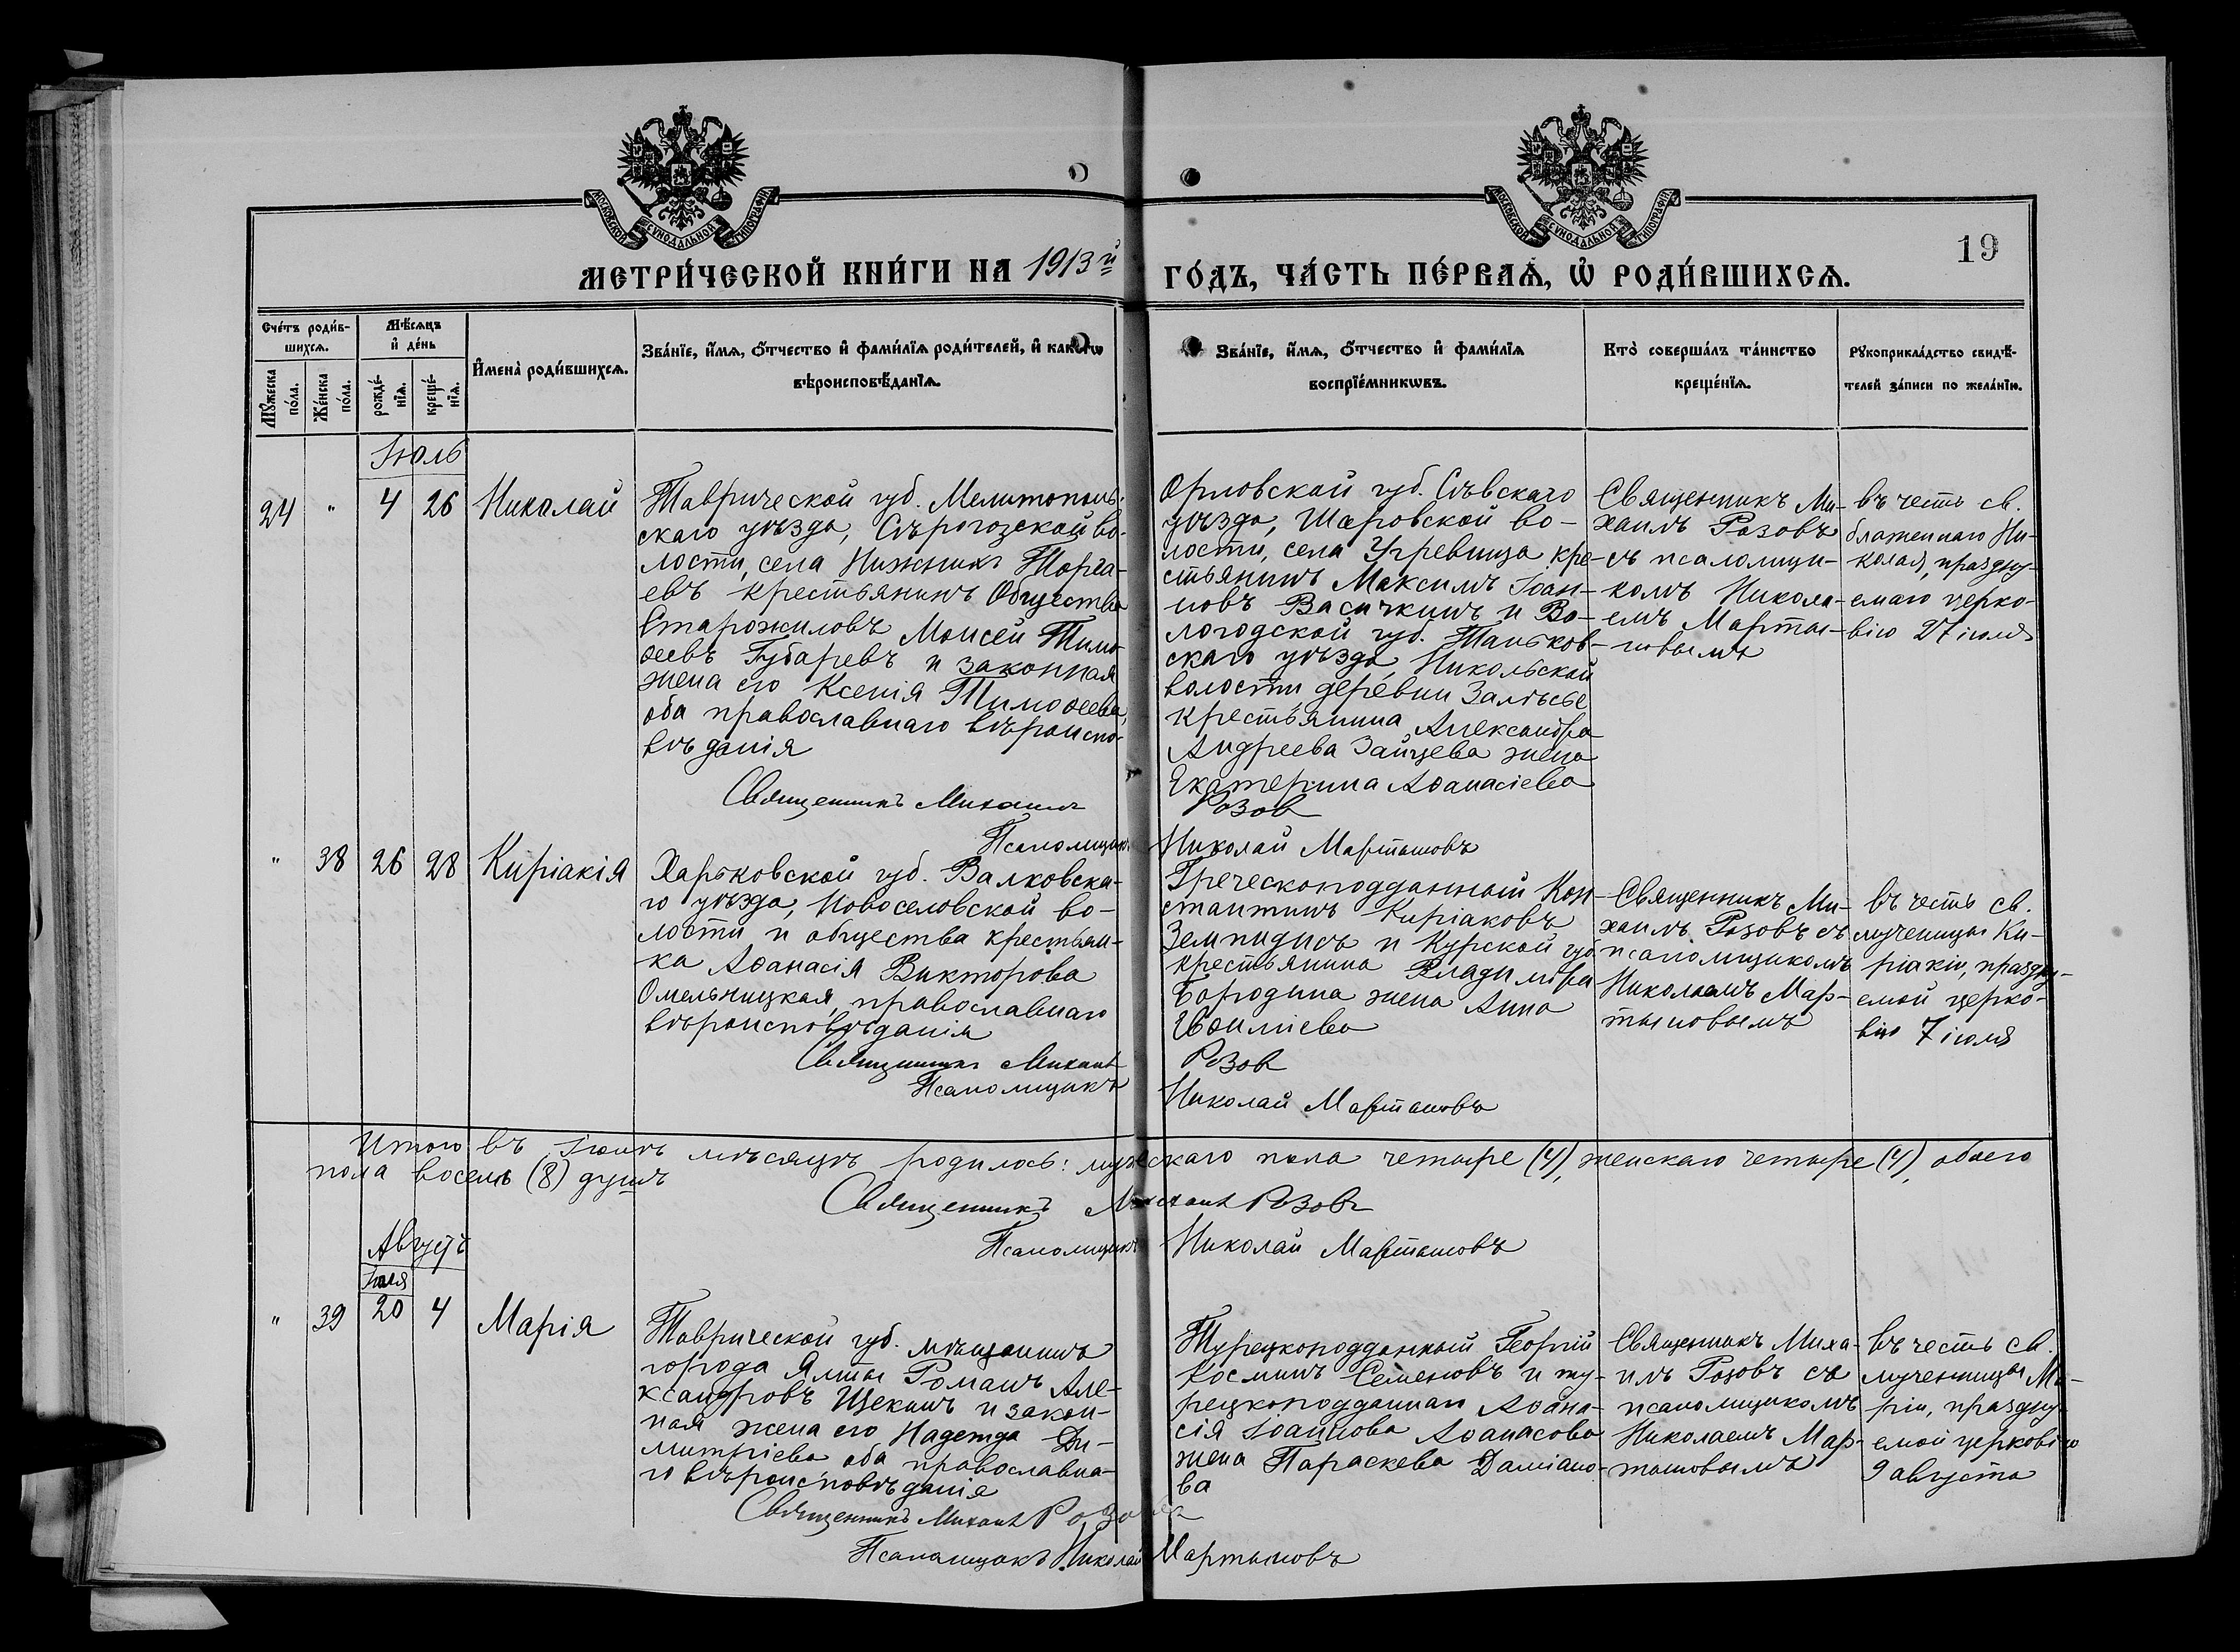 МОСКОВСКОЙ СУНОДАЛЬНОЙ ТИПОГРАФІИ
МОСКОВСКОЙ СУНОДАЛЬНОЙ ТИПОГРАФІИ
19
МЕТРИ́ЧЕСКОЙ КНИ́ГИ НА 1913й
ГО́ДЪ, ЧА́СТЬ ПЕ́РВАѦ, Ѡ҆ РОДИ́ВШИХСѦ.
Сче́тъ роди́в-
шихсѧ.
Мꙋ́жеска
по́ла.
Же́нска
по́ла.
Мѣ́сѧцъ
и҆ де́нь
рожде́-
нїѧ.
креще́-
нїѧ.
И҆мена̀ роди́вшихсѧ.
Зва́нїе, и҆́мѧ, ѻ҆́тчество и҆ фами́лїѧ роди́телей, и҆ како́гѡ
вѣроисповѣ́данїѧ.
Зва́нїе, и҆́мѧ, ѻ҆́тчество и҆ фами́лїѧ
воспрїе́мникѡвъ.
Кто̀ соверша́лъ та́инство
креще́нїѧ.
Рꙋкоприкла́дство свидѣ́-
телей за́писи по жела́нїю.
Іюль
24
"
4
26
Николай
Таврической губ. Мелитополь-
скаго уѣзда, Сѣрогозской во-
лости, села Нижнихъ Торга-
евъ крестьянинъ Общества
Старожиловъ Моисей Тимо-
ѳеевъ Губаревъ и законная
жена его Ксенія Тимоѳеева,
оба православнаго вѣроиспо-
вѣданія
Орловской губ. Сѣвскаго
уѣзда, Шаровской во-
лости, села Угревища кре-
стьянинъ Максимъ Іоан-
новъ Васичкинъ и Во-
логодской губ. Таньков-
скаго уѣзда, Никольской
волости деревни Залѣсье
крестьянина Александра
Андреева Зайцева жена
Екатерина Аѳанасіева
Священникъ Ми-
хаилъ Розовъ
съ псаломщи-
комъ Никола-
емъ Марты-
новымъ
въ честь св.
блаженнаго Ни-
колая, праздну-
емаго церко-
вію 27 іюля
Священникъ Михаилъ Розовъ
Псаломщикъ Николай Мартыновъ
"
38
26
28
Киріакія
Харьковской губ. Валковска-
го уѣзда, Новоселовской во-
лости и общества крестьян-
ка Аѳанасія Викторова
Омельницкая, православнаго
вѣроисповѣданія
Греческоподданный Кон-
стантинъ Киріаковъ
Земпидисъ и Курской губ.
крестьянина Владиміра
Бородина жена Анна
Священникъ Ми-
хаилъ Розовъ съ
псаломщикомъ
Николаемъ Мар-
тыновымъ
въ честь св.
мученицы Ки-
ріакіи, праздну-
емой церко-
вію 7 іюля
Священникъ Михаилъ Розовъ
Псаломщикъ Николай Мартыновъ
Итого въ Іюлѣ мѣсяцѣ родилось: мужескаго пола четыре (4), женскаго четыре (4), обоего
пола восемь (8) душъ
Священникъ Михаилъ Розовъ
Псаломщикъ Николай Мартыновъ
Августъ
Іюля
"
39
20
4
Марія
Таврической губ. мѣщанинъ
города Ялты Романъ Але-
ксандровъ Щекинъ и закон-
ная жена его Надежда Ди-
митріева оба православна-
го вѣроисповѣданія
Турецкоподданный Георгій
Косминъ Семеновъ и ту-
рецкоподданнаго Аѳана-
сія Іоаннова Аѳанасова
жена Параскева Даміано-
ва
Священникъ Миха-
илъ Розовъ съ
псаломщикомъ
Николаемъ Мар-
тыновымъ
въ честь св.
мученицы Ма-
ріи, праздну-
емой церковію
9 августа
Священникъ Михаилъ Розовъ
Псаломщикъ Николай Мартыновъ